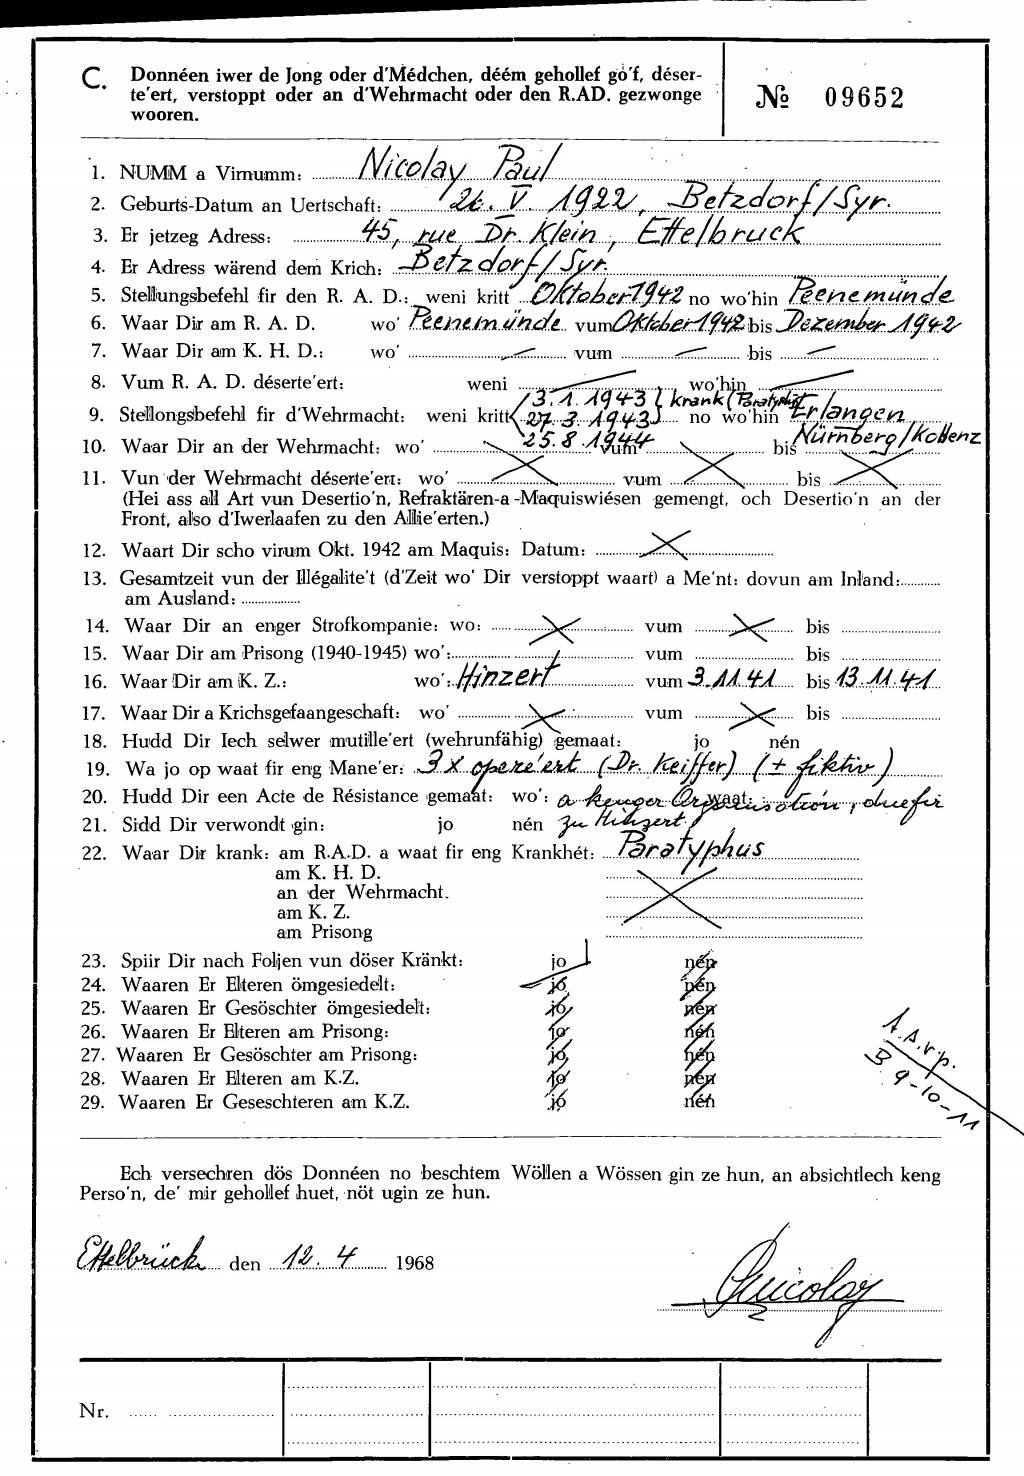 C. Donnéen iwer de Jong oder d'Médchen, déém gehollef go'f, déser-
te'ert, verstoppt oder an d'Wehrmacht oder den R.AD. gezwonge
wooren.
№ 09652
1. NUMM a Virnumm: Nicolay Paul
2. Geburts-Datum an Uertschaft: 26. V. 1922, Betzdorf/Syr.
3. Er jetzeg Adress: 45, rue Dr. Klein, Ettelbruck
4. Er Adress wärend dem Krich: Betzdorf/Syr.
5. Stellungsbefehl fir den R. A. D.: weni kritt Oktober 1942 no wo'hin Peenemünde
6. Waar Dir am R. A. D. wo' Peenemünde vum Oktober 1942 bis Dezember 1942
7. Waar Dir am K. H. D.: wo' — vum — bis —
8. Vum R. A. D. déserte'ert: weni wo'hin
13.1.1943 } krank (Paratyphus)
9. Stellongsbefehl fir d'Wehrmacht: weni kritt 27.3.1943 no wo'hin Erlangen
25.8.1944 Nürnberg/Koblenz
10. Waar Dir an der Wehrmacht: wo' vum bis
11. Vun der Wehrmacht déserte'ert: wo' vum bis
(Hei ass all Art vun Desertio'n, Refraktären-a-Maquiswiésen gemengt, och Desertio'n an der
Front, also d'Iwerlaafen zu den Allie'erten.)
12. Waart Dir scho virum Okt. 1942 am Maquis: Datum:
13. Gesamtzeit vun der Illégalite't (d'Zeit wo' Dir verstoppt waart) a Me'nt: dovun am Inland:
am Ausland:
14. Waar Dir an enger Strofkompanie: wo: vum bis
15. Waar Dir am Prisong (1940-1945) wo': vum bis
16. Waar Dir am K. Z.: wo': Hinzert vum 3.11.41 bis 13.11.41
17. Waar Dir a Krichsgefaangeschaft: wo' vum bis
18. Hudd Dir Iech selwer mutille'ert (wehrunfähig) gemaat: jo nén
19. Wa jo op waat fir eng Mane'er: 3 x opere'ert (Dr. Keiffer) (± fiktiv)
20. Hudd Dir een Acte de Résistance gemaat: wo': a kenger Organisatio'n, duefir waat:
21. Sidd Dir verwondt gin: jo nén zu Hinzert!
22. Waar Dir krank: am R.A.D. a waat fir eng Krankhét: Paratyphus
am K. H. D.
an der Wehrmacht.
am K. Z.
am Prisong
23. Spiir Dir nach Foljen vun döser Kränkt: jo nén
24. Waaren Er Elteren ömgesiedelt: jo nén
25. Waaren Er Gesöschter ömgesiedelt: jo nén
26. Waaren Er Elteren am Prisong: jo nén
27. Waaren Er Gesöschter am Prisong: jo nén
28. Waaren Er Elteren am K.Z. jo nén
29. Waaren Er Geseschteren am K.Z. jo nén
B 9-10-11
Ech versechren dös Donnéen no beschtem Wöllen a Wössen gin ze hun, an absichtlech keng
Perso'n, de' mir gehollef huet, nöt ugin ze hun.
Ettelbrück den 12. 4 1968
Nicolay
Nr.